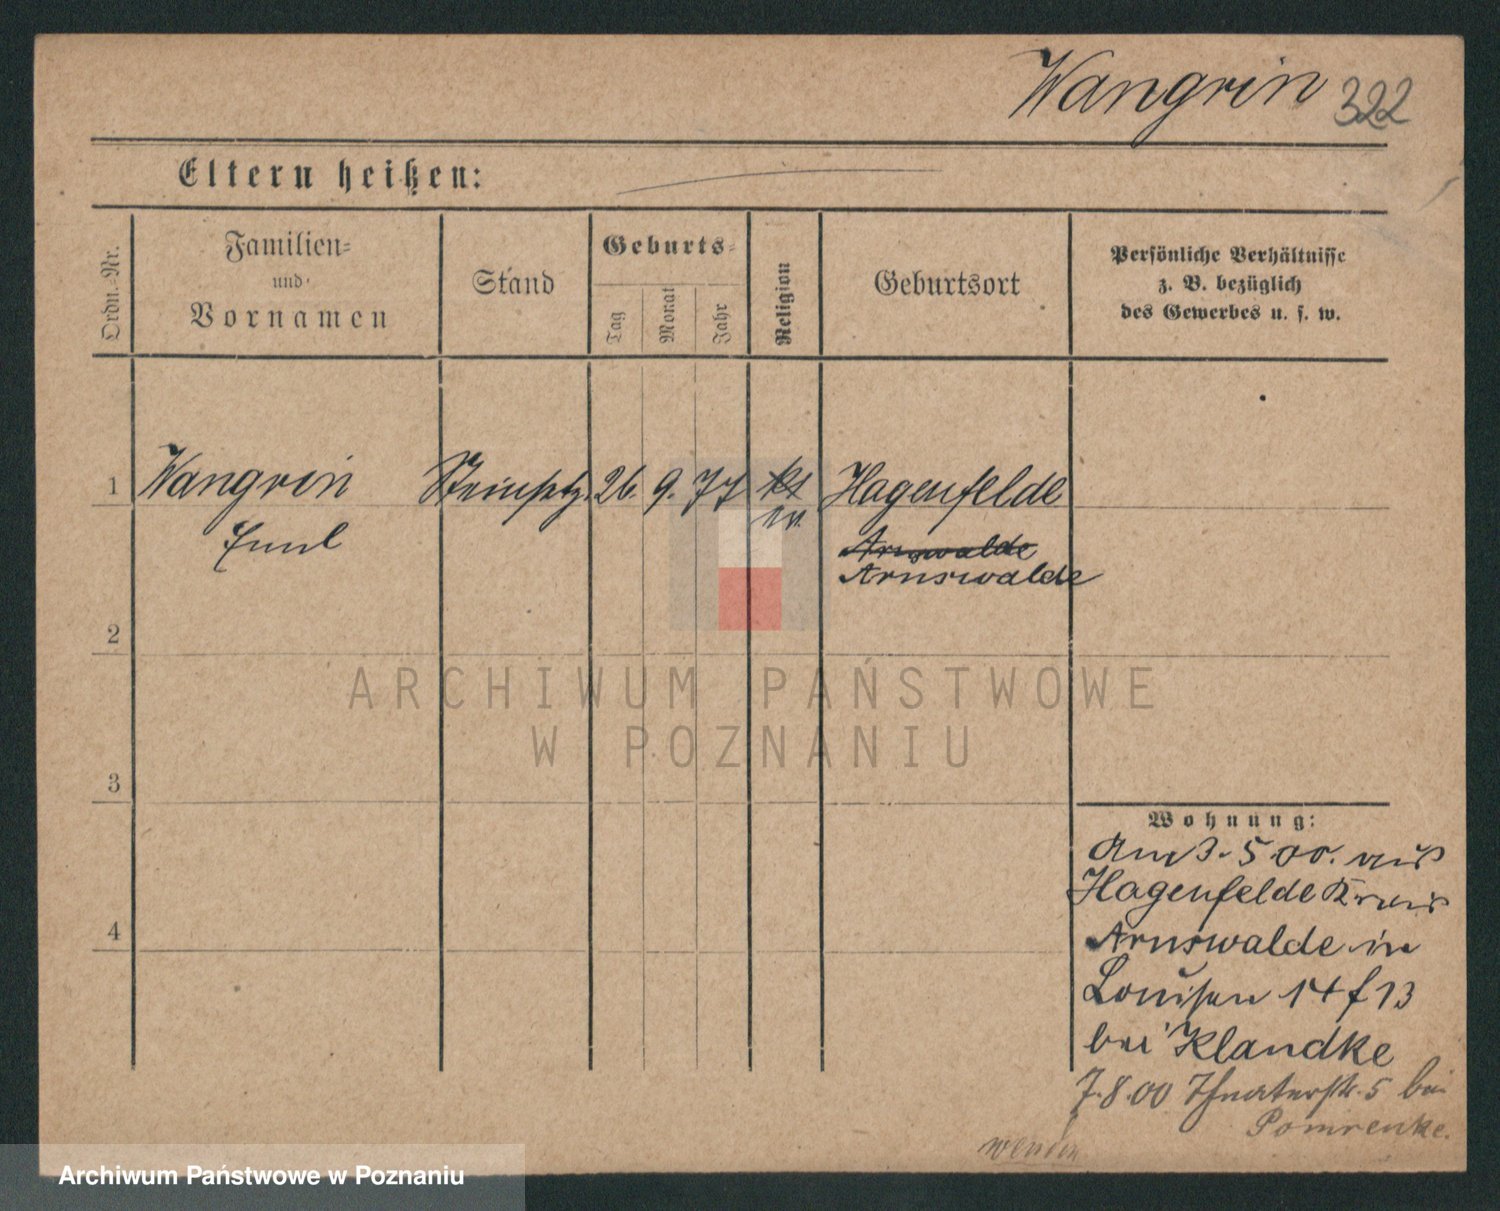 Wangrin 322
Eltern heißen:
Ordn.-Nr.
Familien-
und
Vornamen
Stand
Geburts-
Tag
Monat
Jahr
Religion
Geburtsort
Persönliche Verhältnisse
z. B. bezüglich
des Gewerbes u. s. w.
1 Wangrin Steinsetz. 26. 9. 77 kt Hagenfelde
Emil ev.
Arnswalde
Arnswalde
2
ARCHIWUM PAŃSTWOWE
W POZNANIU
3
Wohnung:
Am 3. 5 00. aus
Hagenfelde Kreis
4 Arnswalde in
Louisen 14 f 13
bei Klandke
7.8.00 Theaterstr. 5 bei
Pomrenke.
wenden
Archiwum Państwowe w Poznaniu